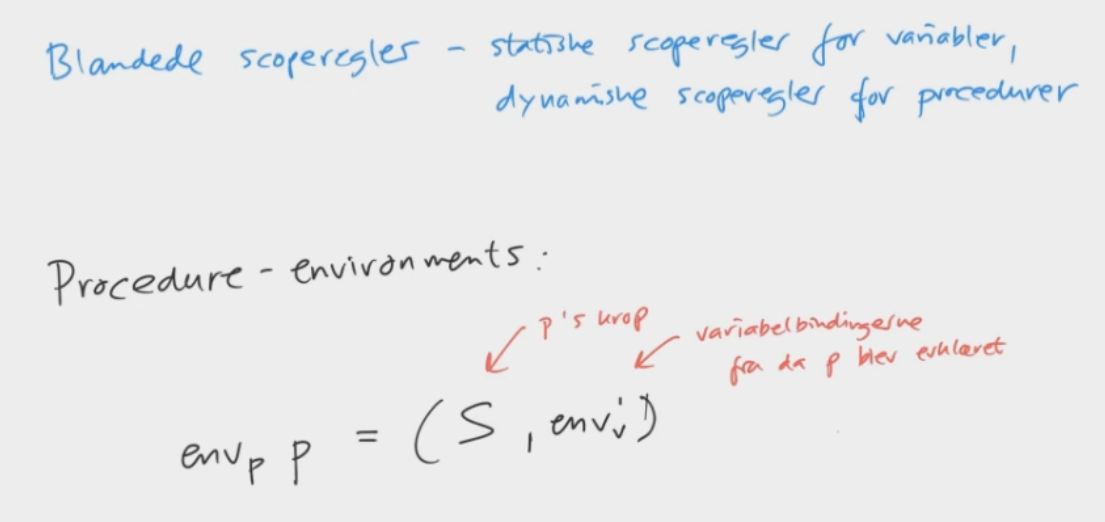 Blandede scoperegler - statiske scoperegler for variabler,
dynamiske scoperegler for procedurer
Procedure-environments:
p's krop
variabelbindingerne
fra da p blev erklæret
env_p p = (S, env_v')